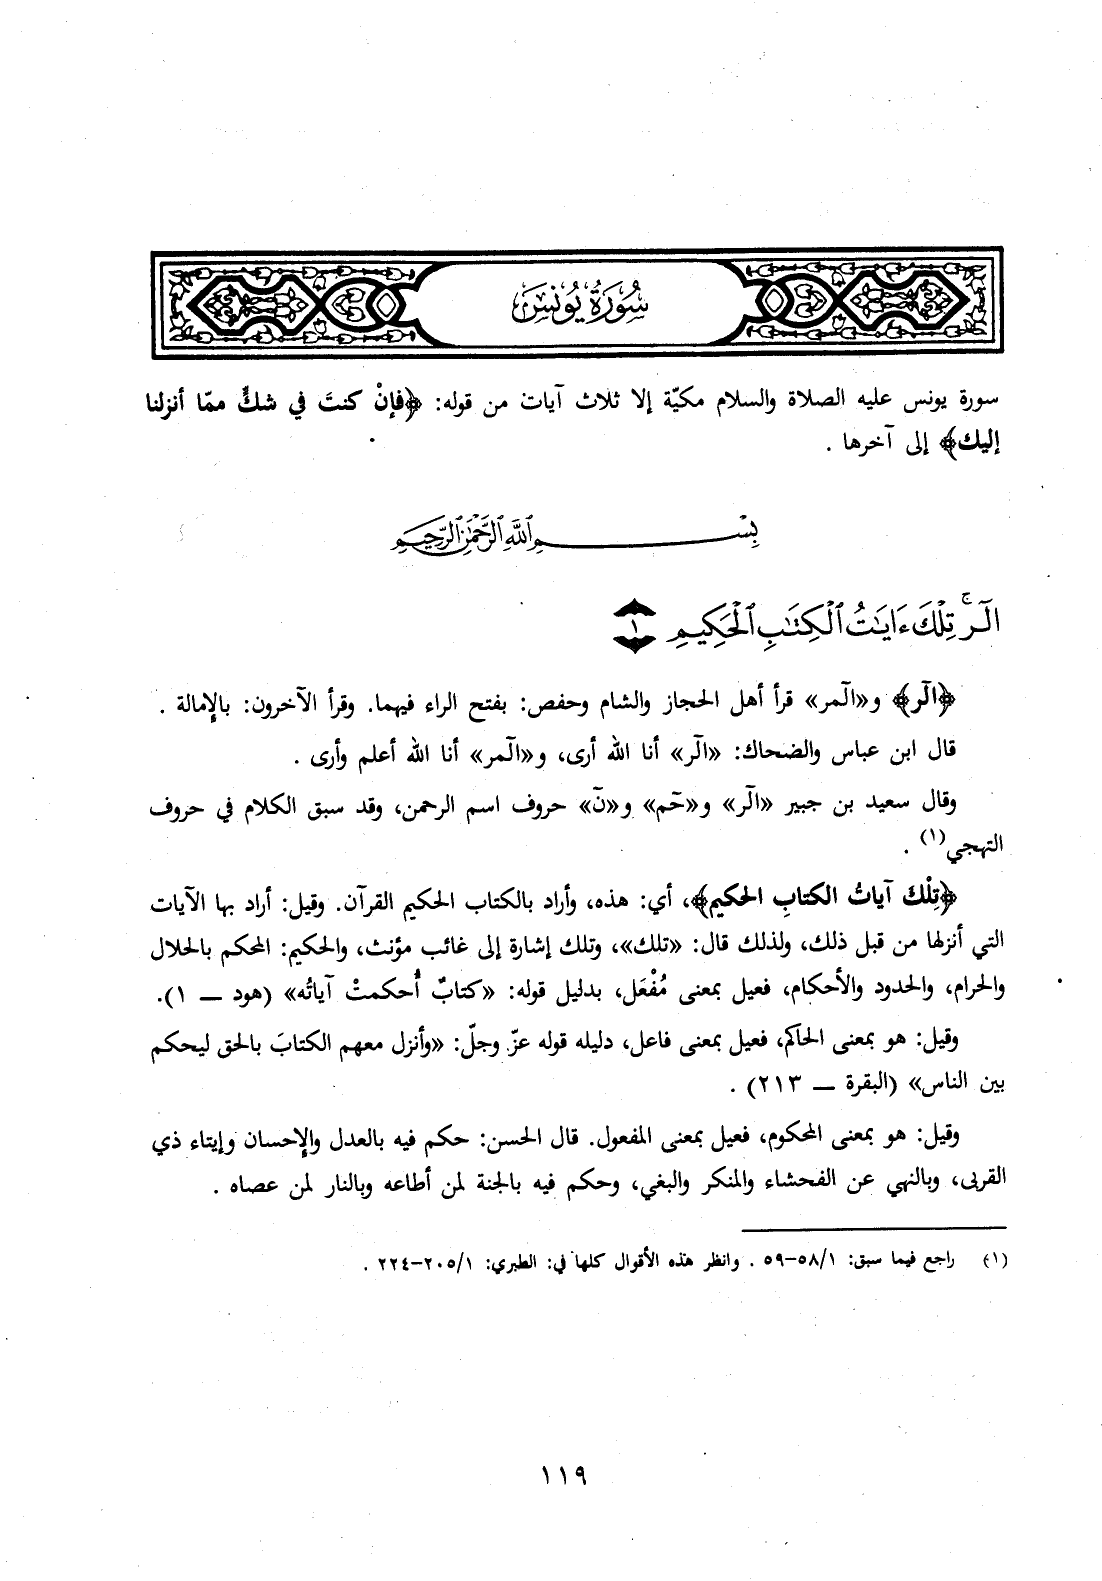 سُورَةُ يُونُسَ
سورة يونس عليه الصلاة والسلام مكيّة إلا ثلاث آيات من قوله: ﴿فإنْ كنتَ في شكٍّ ممّا أنزلنا
إليك﴾ إلى آخرها .
بِسْــــمِ ٱللَّهِ ٱلرَّحْمَٰنِ ٱلرَّحِيمِ
الٓرۚ تِلْكَ ءَايَٰتُ ٱلْكِتَٰبِ ٱلْحَكِيمِ ١
﴿الٓر﴾ و«الٓمر» قرأ أهل الحجاز والشام وحفص: بفتح الراء فيهما. وقرأ الآخرون: بالإمالة .
قال ابن عباس والضحاك: «الٓر» أنا الله أرى، و«الٓمر» أنا الله أعلم وأرى .
وقال سعيد بن جبير «الٓر» و«حٓم» و«نٓ» حروف اسم الرحمن، وقد سبق الكلام في حروف
التهجي(١) .
﴿تِلْكَ آياتُ الكتابِ الحكيم﴾، أي: هذه، وأراد بالكتاب الحكيم القرآن. وقيل: أراد بها الآيات
التي أنزلها من قبل ذلك، ولذلك قال: «تلك»، وتلك إشارة إلى غائب مؤنث، والحكيم: المحكم بالحلال
والحرام، والحدود والأحكام، فعيل بمعنى مُفْعَل، بدليل قوله: «كتابٌ أُحكمتْ آياتُه» (هود ــ ١).
وقيل: هو بمعنى الحاكم، فعيل بمعنى فاعل، دليله قوله عزّ وجلّ: «وأنزل معهم الكتابَ بالحق ليحكم
بين الناس» (البقرة ــ ٢١٣) .
وقيل: هو بمعنى المحكوم، فعيل بمعنى المفعول. قال الحسن: حكم فيه بالعدل والإحسان وإيتاء ذي
القربى، وبالنهي عن الفحشاء والمنكر والبغي، وحكم فيه بالجنة لمن أطاعه وبالنار لمن عصاه .
(١) راجع فيما سبق: ١/ ٥٨-٥٩ . وانظر هذه الأقوال كلها في: الطبري: ١/ ٢٠٥-٢٢٤ .
١١٩